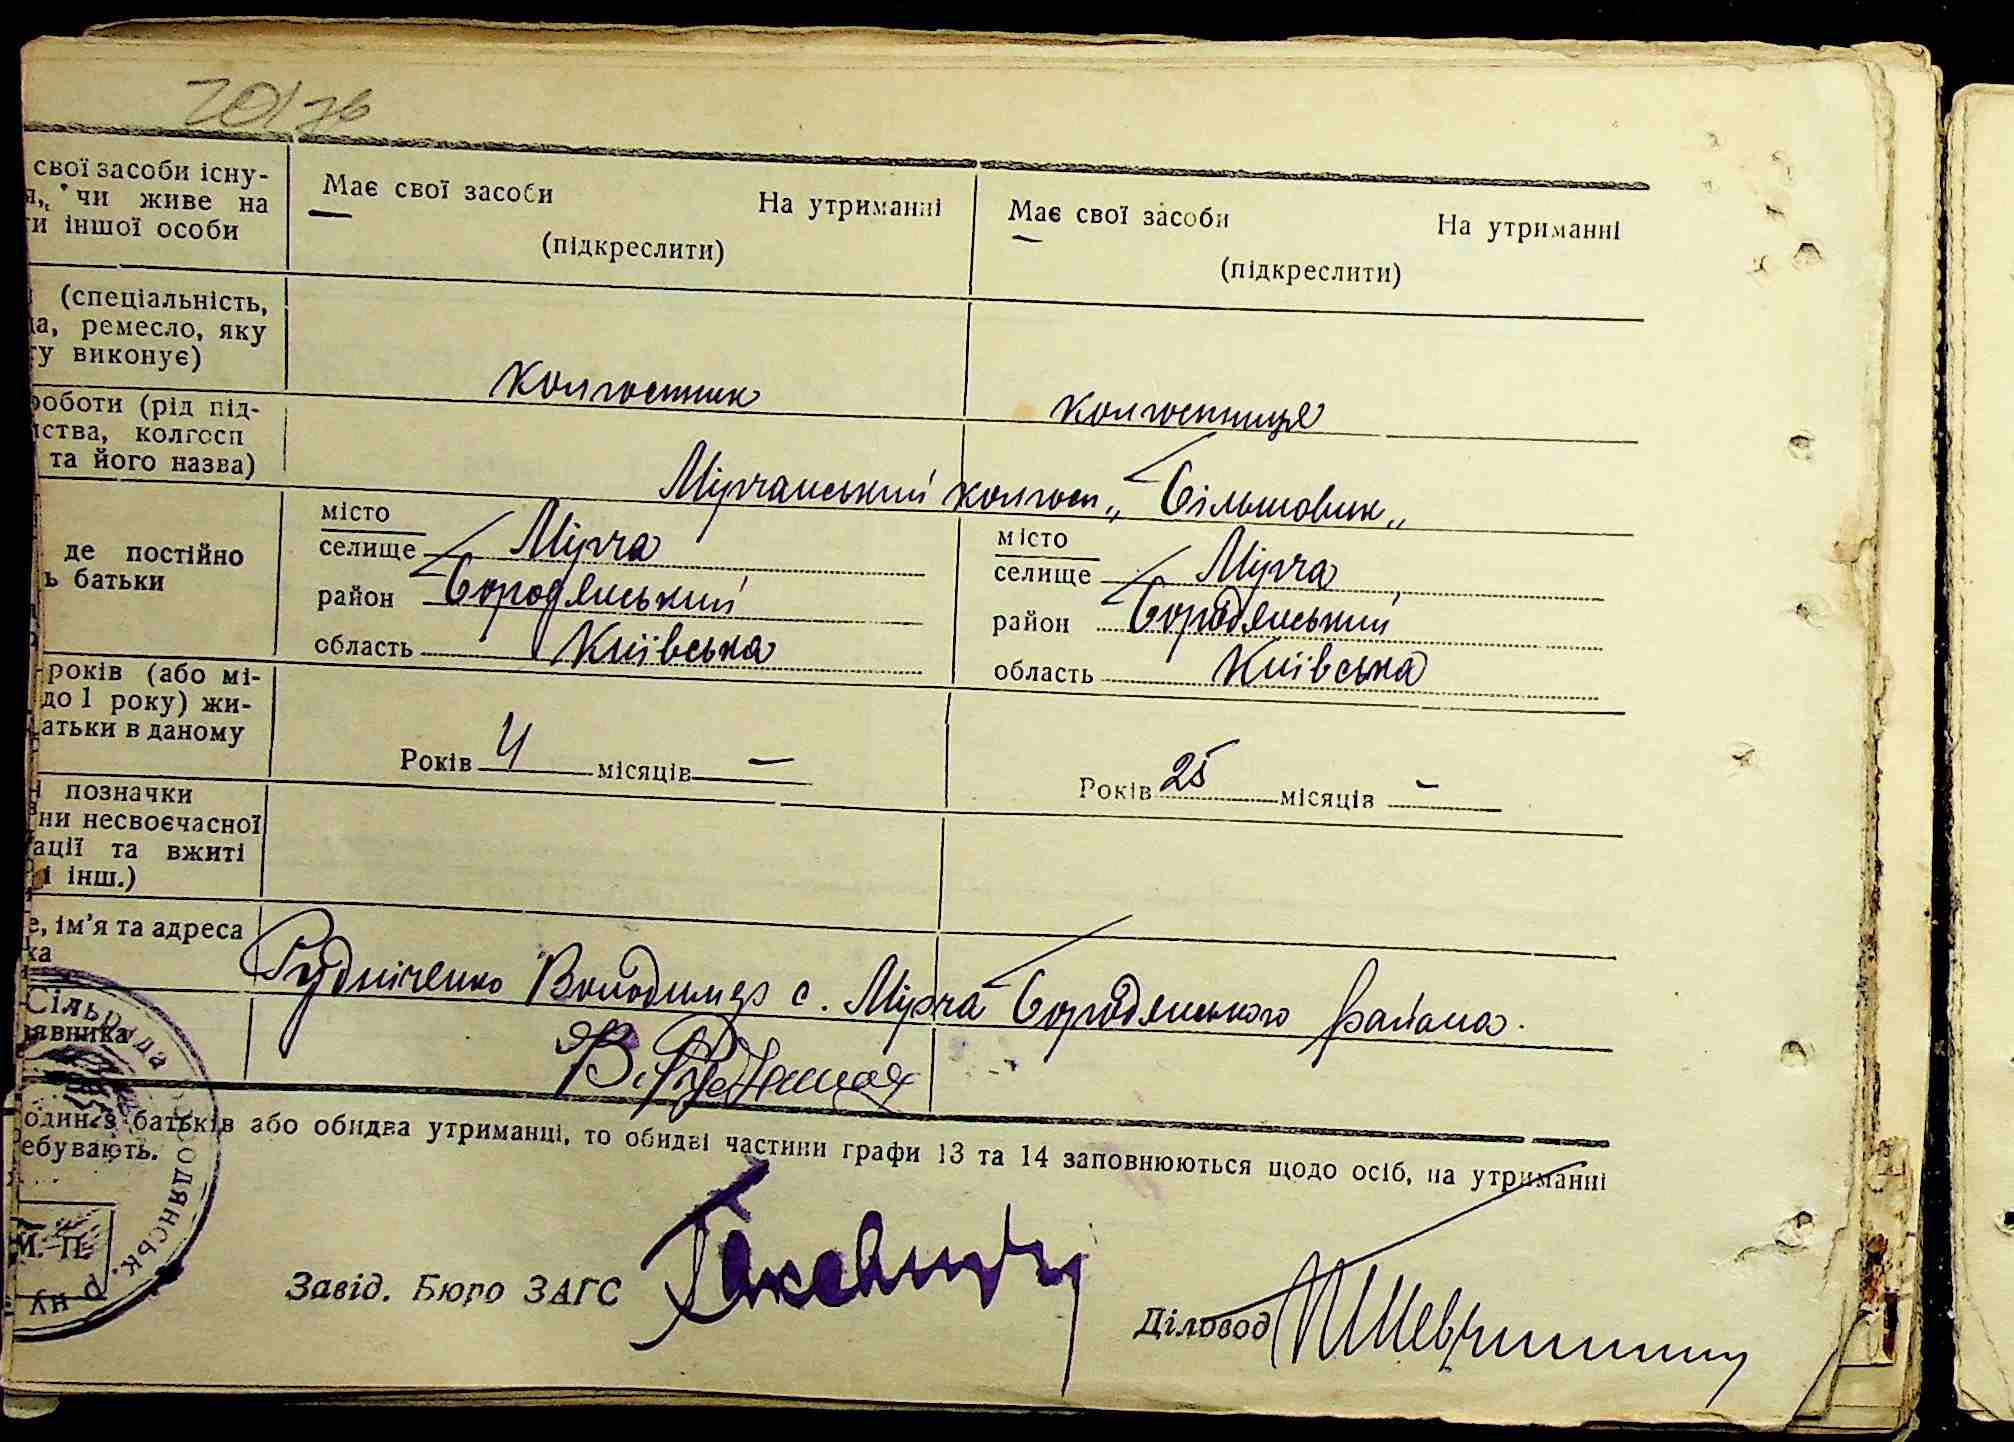 201 зв
свої засоби існу-
чи живе на
и іншої особи
Має свої засоби На утриманні
(підкреслити)
Має свої засоби На утриманні
(підкреслити)
(спеціальність,
да, ремесло, яку
ту виконує)
колгоспник
колгоспниця
роботи (рід під-
ства, колгосп
та його назва)
Мірчанський колгосп „Більшовик„
де постійно
ь батьки
місто
селище Мірча
район Бородянський
область Київська
місто
селище Мірча
район Бородянський
область Київська
років (або мі-
до 1 року) жи-
атьки в даному
Років 4 місяців —
Років 25 місяців —
позначки
ни несвоєчасної
ації та вжиті
і інш.)
е, ім’я та адреса
ка
Рудніченко Володимир с. Мірча Бородянського района.
явника
один з батьків або обидва утриманці, то обидві частини графи 13 та 14 заповнюються щодо осіб, на утриманні
ебувають.
Сільрада Бородянськ. р-ну
М. П.
Завід. Бюро ЗАГС
Діловод